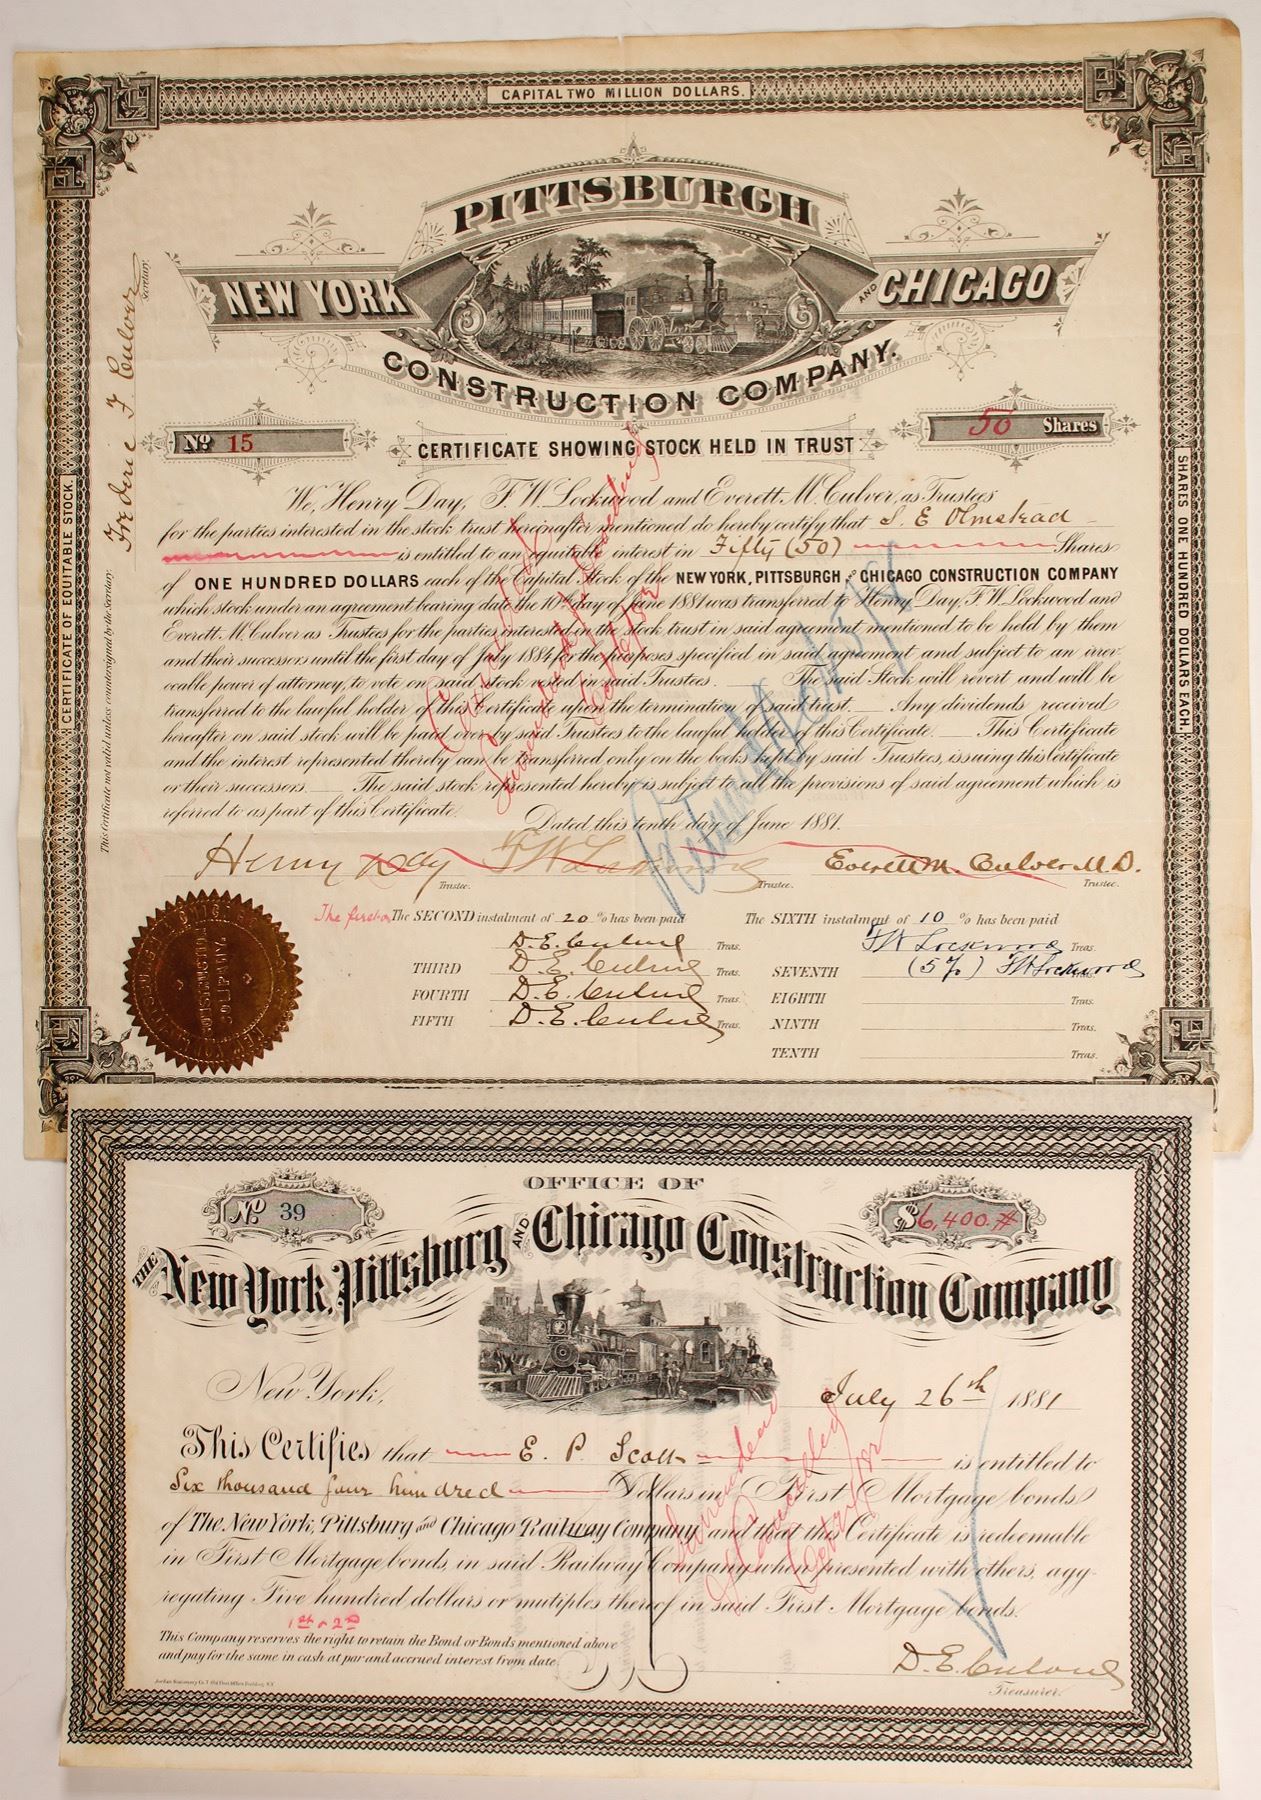 CAPITAL TWO MILLION DOLLARS.
PITTSBURGH
NEW YORK AND CHICAGO
CONSTRUCTION COMPANY.
No 15
50 Shares
CERTIFICATE SHOWING STOCK HELD IN TRUST
We, Henry Day, F. W. Lockwood and Everett M. Culver, as Trustees
for the parties interested in the stock trust hereinafter mentioned do hereby certify that S. E Olmstead
is entitled to an equitable interest in Fifty (50) Shares
of ONE HUNDRED DOLLARS each of the Capital Stock of the NEW YORK, PITTSBURGH AND CHICAGO CONSTRUCTION COMPANY
which stock under an agreement bearing date the 10th day of June 1881 was transferred to Henry Day, F. W. Lockwood and
Everett M. Culver as Trustees for the parties interested in the stock trust in said agreement mentioned to be held by them
and their successors until the first day of July 1884 for the purposes specified in said agreement and subject to an irrev-
ocable power of attorney, to vote on said stock vested in said Trustees. The said Stock will revert and will be
transferred to the lawful holder of this Certificate upon the termination of said trust. Any dividends received
hereafter on said stock will be paid over by said Trustees to the lawful holder of this Certificate. This Certificate
and the interest represented thereby can be transferred only on the books kept by said Trustees, issuing this Certificate
or their successors. The said stock represented hereby is subject to all the provisions of said agreement which is
referred to as part of this Certificate. Dated this tenth day of June 1881.
Henry Day F W Lockwood Everett M. Culver M. D.
Trustee. Trustee. Trustee.
The first or The SECOND instalment of 20 % has been paid
D. E. Culver Treas.
THIRD D. E. Culver Treas.
FOURTH D. E. Culver Treas.
FIFTH D. E. Culver Treas.
The SIXTH instalment of 10 % has been paid
F W Lockwood Treas.
SEVENTH (5%) F W Lockwood Treas.
EIGHTH Treas.
NINTH Treas.
TENTH Treas.
CERTIFICATE OF EQUITABLE STOCK.
This Certificate not valid unless countersigned by the Secretary.
Frederic F. Culver
Secretary.
SHARES ONE HUNDRED DOLLARS EACH.
CONSTRUCTION
COMPANY
Cancelled
OFFICE OF
No 39
$6,400.#
THE New York, Pittsburg AND Chicago Construction Company
New York, July 26th 1881
This Certifies that E. P. Scott is entitled to
Six thousand four hundred Dollars in First Mortgage bonds
of The New York, Pittsburg and Chicago Railway Company and that this Certificate is redeemable
in First Mortgage bonds, in said Railway Company when presented with others, agg-
regating Five hundred dollars or mutiples thereof in said First Mortgage bonds.
1st & 2d
This Company reserves the right to retain the Bond or Bonds mentioned above
and pay for the same in cash at par and accrued interest from date
D. E. Culver
Treasurer.